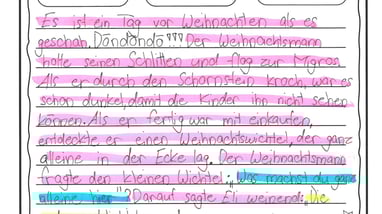 Es ist ein Tag vor Weihnachten als es
geschah. Dondondo??? Der Weihnachtsmann
holte seinen Schlitten und flog zur Migros.
Als er durch den Schornstein kroch, war es
schon dunkel, damit die Kinder ihn nicht sehen
können. Als er fertig war mit einkaufen,
entdeckte er einen Weihnachtswichtel, der ganz
alleine in der Ecke lag. Der Weihnachtsmann
fragte den kleinen Wichtel: „Was machst du ganz
alleine hier"? Darauf sagte Eli weinend: „Die